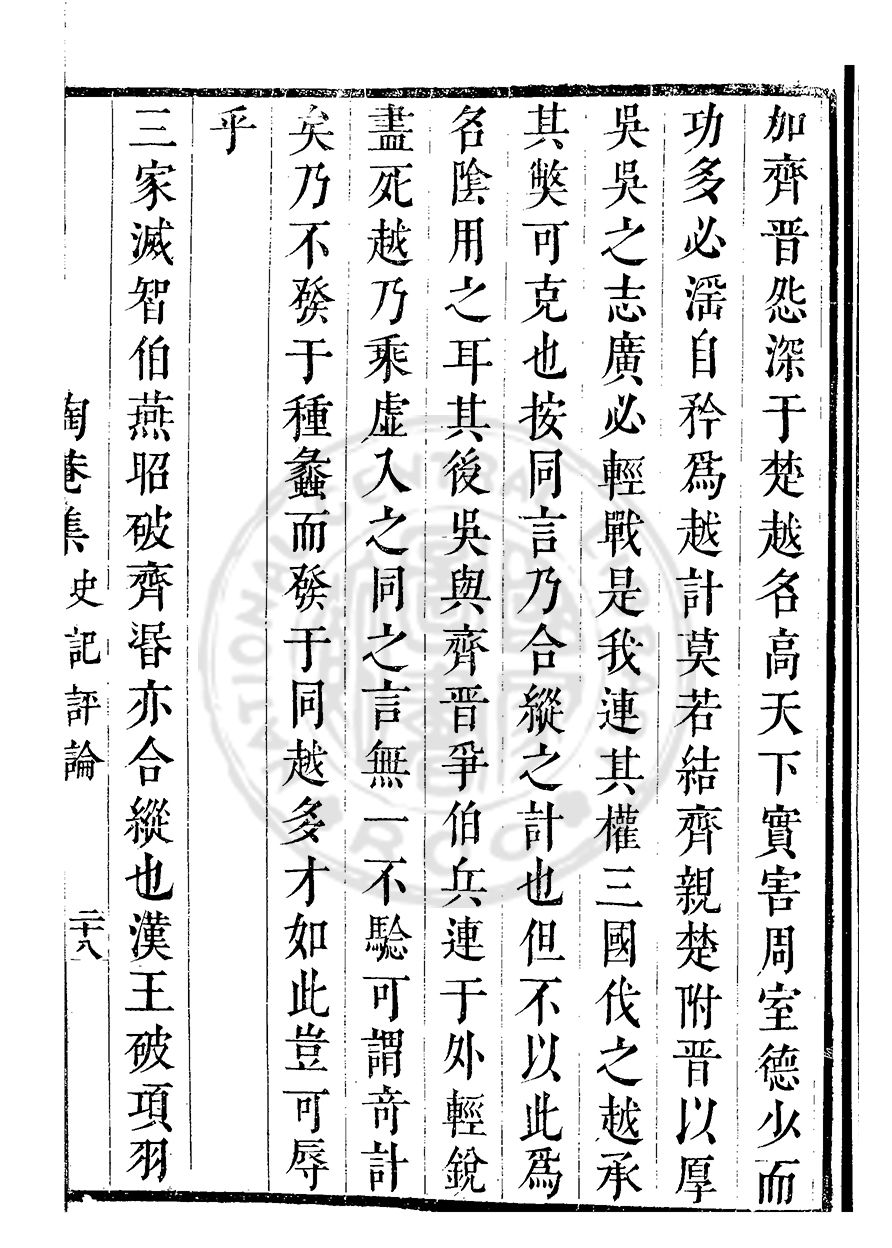 加齊晉怨深于楚越名高天下實害周室德少而
功多必滛自矜爲越計莫若結齊親楚附晉以厚
吳吳之志廣必輕戰是我連其權三國伐之越承
其獘可克也按同言乃合縱之計也但不以此爲
名陰用之耳其後吳與齊晉爭伯兵連于外輕銳
盡死越乃乘虛入之同之言無一不驗可謂奇計
矣乃不發于種蠡而發于同越多才如此豈可辱
乎
三家滅智伯燕昭破齊湣亦合縱也漢王破項羽
陶菴集 史記評論 二十八